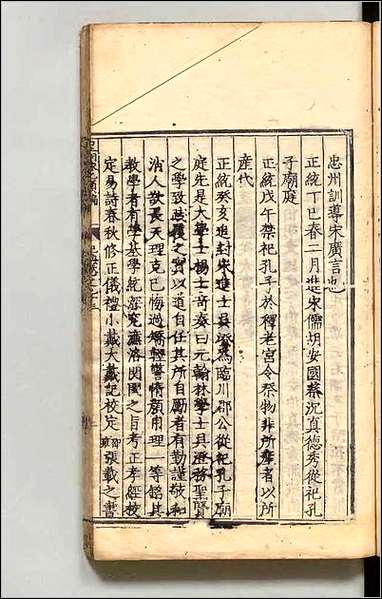 忠州訓導宋廣言也
正統丁巳春二月進宋儒胡安國蔡沉真德秀從祀孔
子廟庭
正統戊午禁祀孔子於釋老宮令祭物非所產者以所
產代
正統癸亥追封宋進士吳澄為臨川郡公從祀孔子廟
庭先是大學士楊士奇奏曰元翰林學士吳澄務聖賢
之學致踐履之實以道自任其所自勵者有勤謹敬和
消人欲長天理克己悔過矯輕警惰顏冉理一等銘其
教學者有學基學統究濂洛関閩之旨考正孝經校
定易詩春秋修正儀禮小戴大戴記校定邵雍張載之書